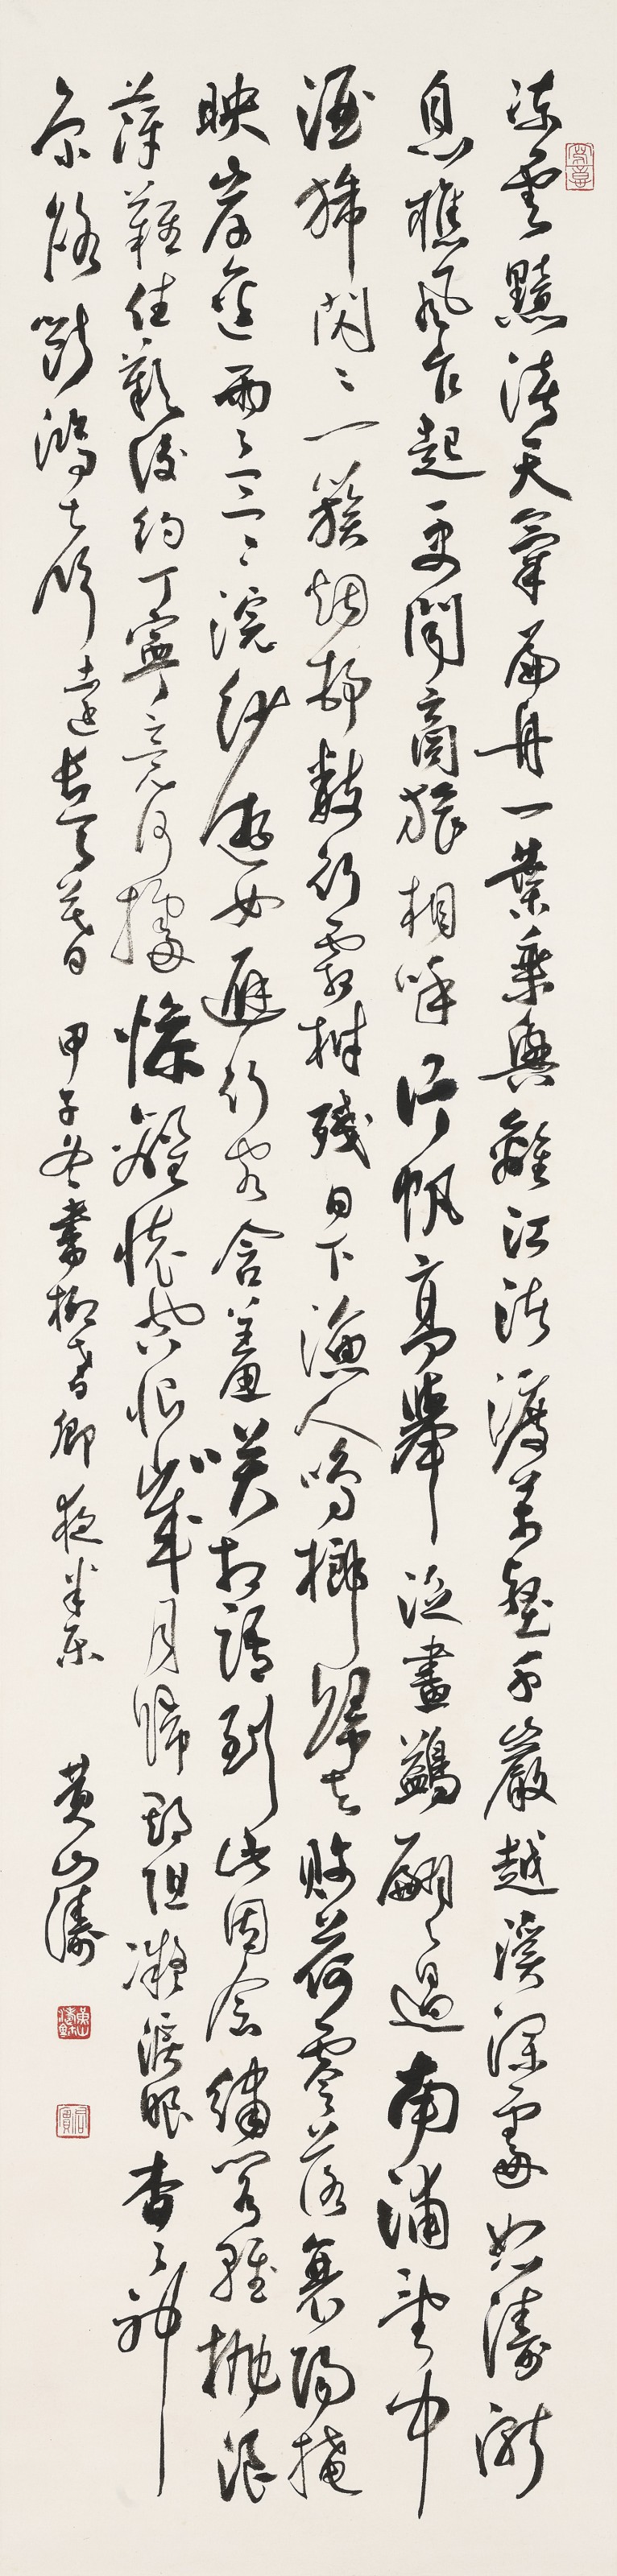 凍雲黯淡天氣扁舟一葉乘興離江渚渡萬壑千巖越溪深處怒濤漸
息樵風乍起更聞商旅相呼片帆高舉泛畫鷁翩〻過南浦望中
酒旆閃〻一簇烟村數行霜樹殘日下漁人鳴榔歸去敗荷零落衰楊掩
映岸邊兩〻三〻浣紗遊女避行客含羞笑相語到此因念繡閣輕拋浪
萍難住歎後約丁寧竟何據慘離懷空恨歲月歸期阻凝淚眼杳〻神
京路斷鴻聲遠長天暮 甲子冬書柳耆卿夜半樂 黃山濤